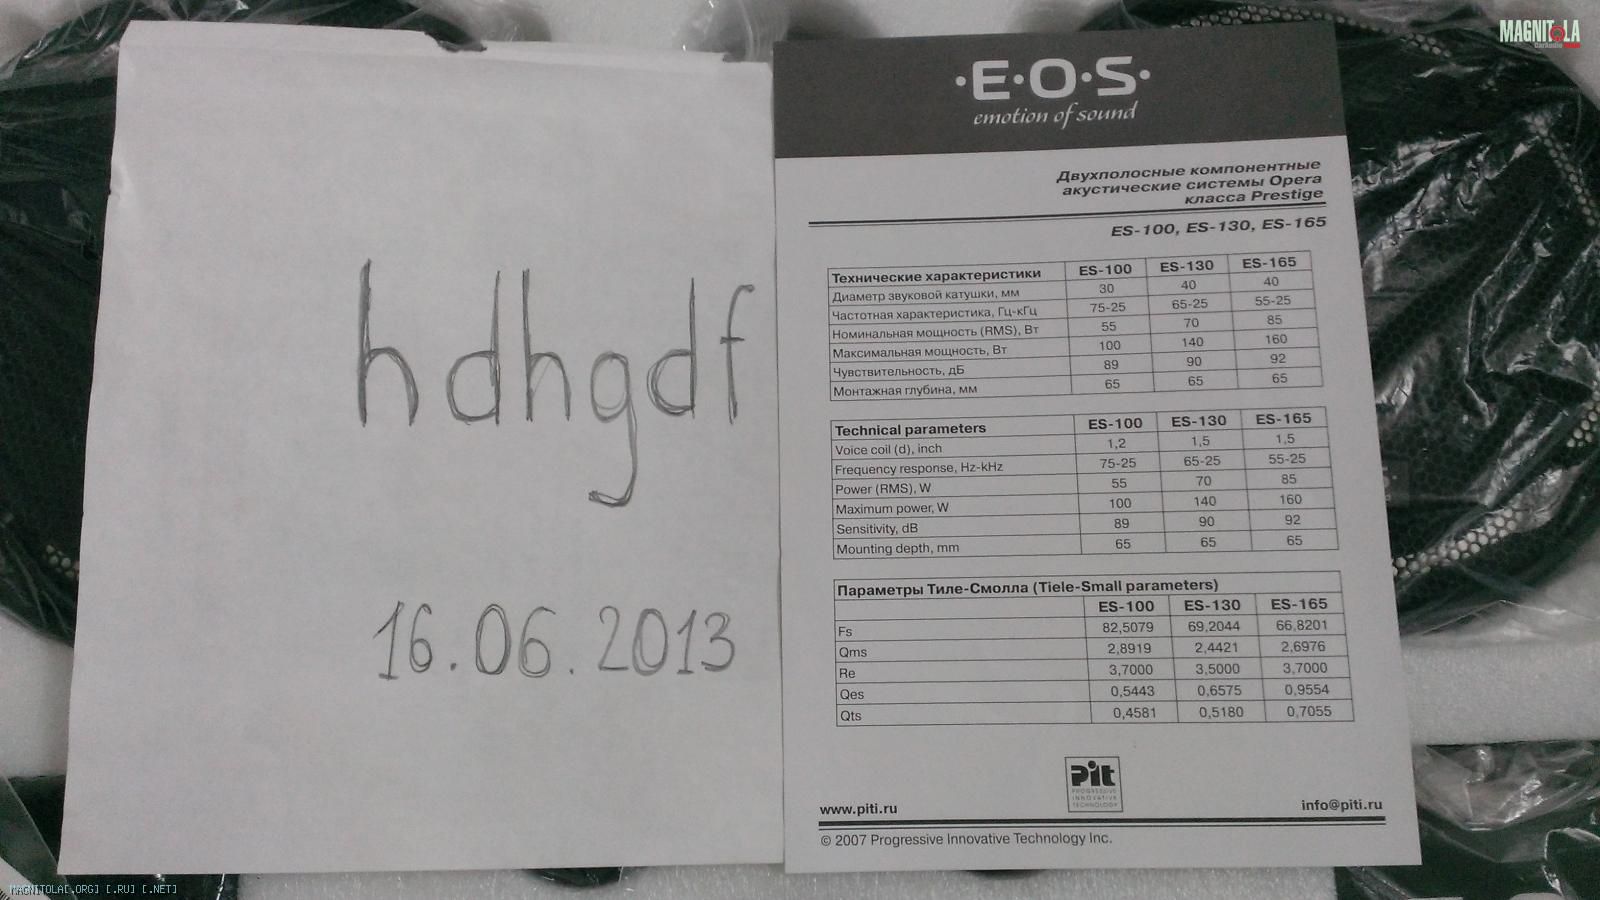 MAGNITOLA
hdhgdf
16.06.2013
·E·O·S·
emotion of sound
Двухполосные компонентные
акустические системы Opera
класса Prestige
ES-100, ES-130, ES-165
Технические характеристики ES-100 ES-130 ES-165
Диаметр звуковой катушки, мм 30 40 40
Частотная характеристика, Гц-кГц 75-25 65-25 55-25
Номинальная мощность (RMS), Вт 55 70 85
Максимальная мощность, Вт 100 140 160
Чувствительность, дБ 89 90 92
Монтажная глубина, мм 65 65 65
Technical parameters ES-100 ES-130 ES-165
Voice coil (d), inch 1,2 1,5 1,5
Frequency response, Hz-kHz 75-25 65-25 55-25
Power (RMS), W 55 70 85
Maximum power, W 100 140 160
Sensitivity, dB 89 90 92
Mounting depth, mm 65 65 65
Параметры Тиле-Смолла (Tiele-Small parameters)
ES-100 ES-130 ES-165
Fs 82,5079 69,2044 66,8201
Qms 2,8919 2,4421 2,6976
Re 3,7000 3,5000 3,7000
Qes 0,5443 0,6575 0,9554
Qts 0,4581 0,5180 0,7055
Pit
PROGRESSIVE
INNOVATIVE
TECHNOLOGY
www.piti.ru info@piti.ru
© 2007 Progressive Innovative Technology Inc.
MAGNITOLA[.ORG] [.RU] [.NET]